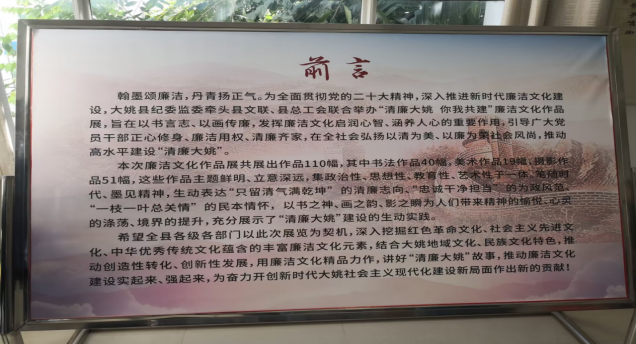 前言
翰墨颂廉洁，丹青扬正气。为全面贯彻党的二十大精神，深入推进新时代廉洁文化建
设，大姚县纪委监委牵头县文联、县总工会联合举办“清廉大姚 你我共建”廉洁文化作品
展，旨在以书言志、以画传廉，发挥廉洁文化启润心智、涵养人心的重要作用，引导广大党
员干部正心修身、廉洁用权、清廉齐家，在全社会弘扬以清为美、以廉为荣社会风尚，推动
高水平建设“清廉大姚”。
本次廉洁文化作品展共展出作品110幅，其中书法作品40幅，美术作品19幅，摄影作
品51幅，这些作品主题鲜明、立意深远，集政治性、思想性、教育性、艺术性于一体，笔随时
代、墨见精神，生动表达“只留清气满乾坤”的清廉志向、“忠诚干净担当”的为政风范、
“一枝一叶总关情”的民本情怀，以书之神、画之韵、影之瞬为人们带来精神的愉悦、心灵
的涤荡、境界的提升，充分展示了“清廉大姚”建设的生动实践。
希望全县各级各部门以此次展览为契机，深入挖掘红色革命文化、社会主义先进文
化、中华优秀传统文化蕴含的丰富廉洁文化元素，结合大姚地域文化、民族文化特色，推
动创造性转化、创新性发展，用廉洁文化精品力作，讲好“清廉大姚”故事，推动廉洁文化
建设实起来、强起来，为奋力开创新时代大姚社会主义现代化建设新局面作出新的贡献！